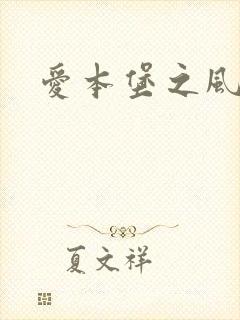 愛本堡之風
夏文祥